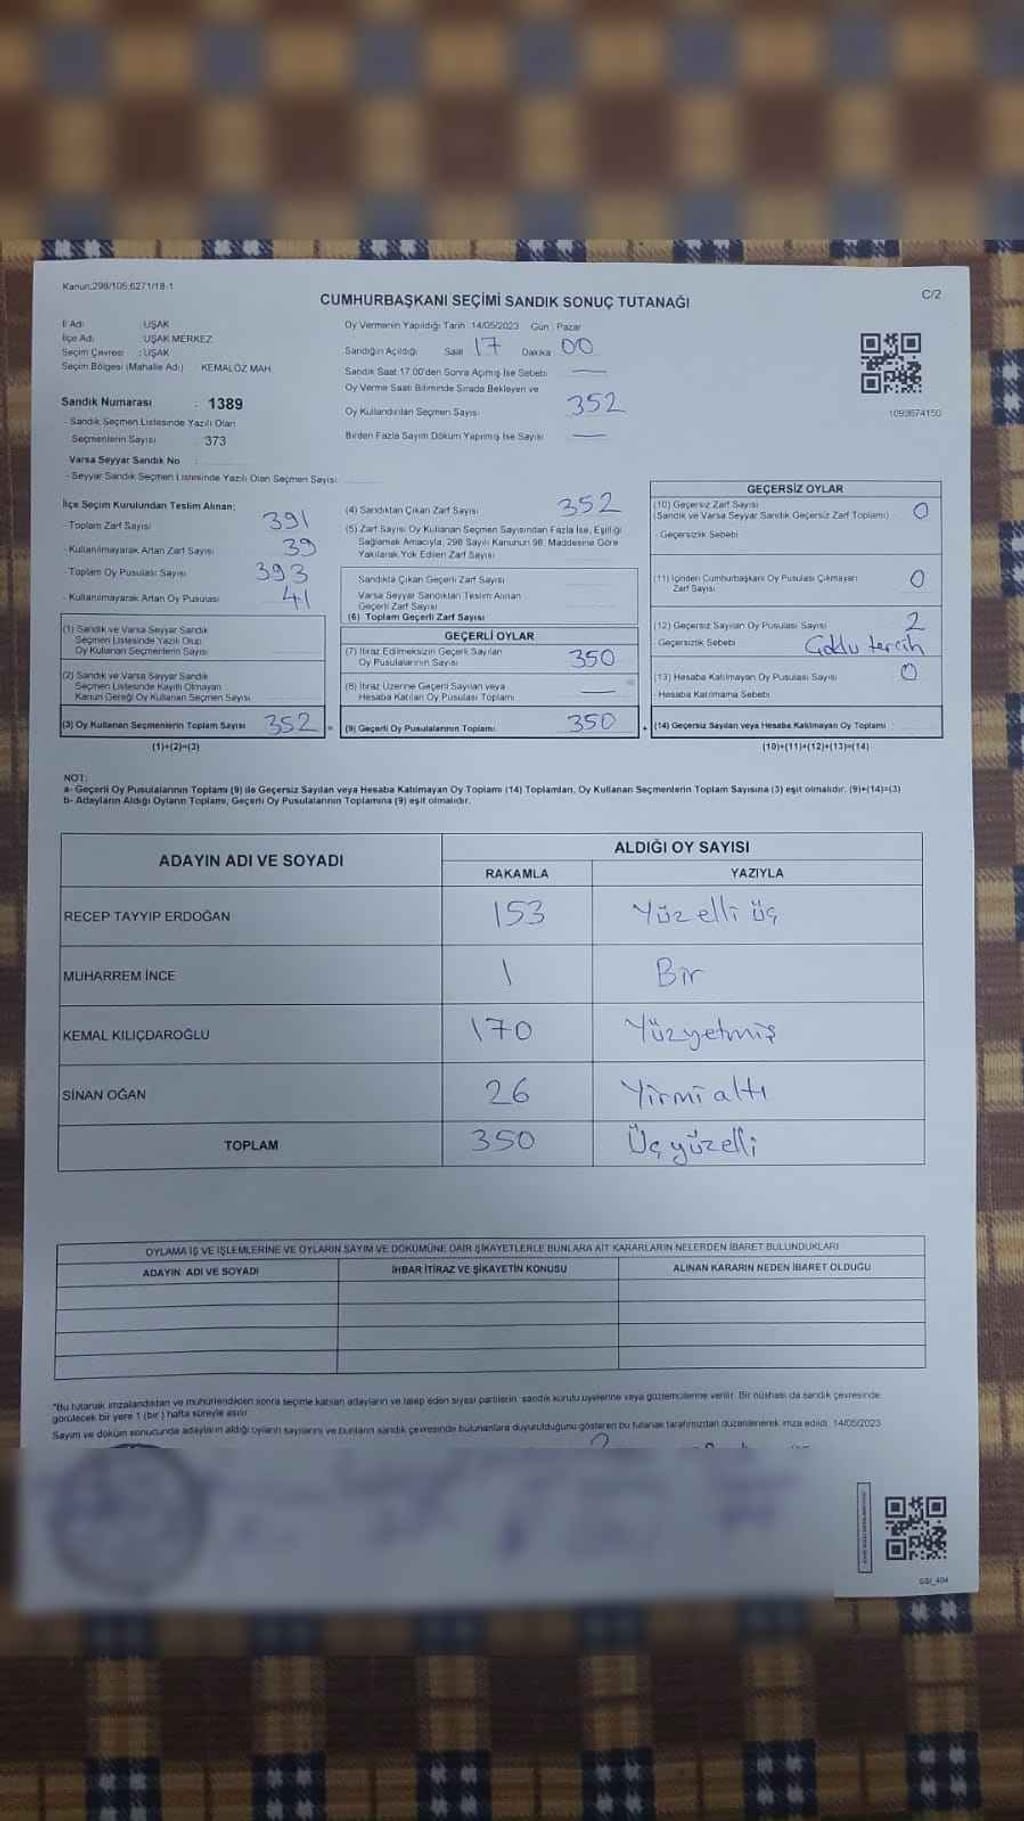 Kanun:298/105;6271/18-1
CUMHURBAŞKANI SEÇİMİ SANDIK SONUÇ TUTANAĞI
C/2
İl Adı : UŞAK
İlçe Adı : UŞAK MERKEZ
Seçim Çevresi : UŞAK
Seçim Bölgesi (Mahalle Adı) KEMALÖZ MAH.
Sandık Numarası : 1389
- Sandık Seçmen Listesinde Yazılı Olan
Seçmenlerin Sayısı : 373
Varsa Seyyar Sandık No :
- Seyyar Sandık Seçmen Listesinde Yazılı Olan Seçmen Sayısı:
Oy Vermenin Yapıldığı Tarih: 14/05/2023 Gün : Pazar
Sandığın Açıldığı Saat 17 Dakika 00
Sandık Saat 17.00'den Sonra Açılmış İse Sebebi —
Oy Verme Saati Bitiminde Sırada Bekleyen ve
Oy Kullandırılan Seçmen Sayısı 352
Birden Fazla Sayım Döküm Yapılmış İse Sayısı —
1093674150
İlçe Seçim Kurulundan Teslim Alınan;
-Toplam Zarf Sayısı 391
- Kullanılmayarak Artan Zarf Sayısı 39
-Toplam Oy Pusulası Sayısı 393
- Kullanılmayarak Artan Oy Pusulası 41
(1) Sandık ve Varsa Seyyar Sandık
Seçmen Listesinde Yazılı Olup
Oy Kullanan Seçmenlerin Sayısı
(2) Sandık ve Varsa Seyyar Sandık
Seçmen Listesinde Kayıtlı Olmayan
Kanun Gereği Oy Kullanan Seçmen Sayısı
(3) Oy Kullanan Seçmenlerin Toplam Sayısı 352 =
(1)+(2)=(3)
(4) Sandıktan Çıkan Zarf Sayısı 352
(5) Zarf Sayısı Oy Kullanan Seçmen Sayısından Fazla İse, Eşitliği
Sağlamak Amacıyla, 298 Sayılı Kanunun 98. Maddesine Göre
Yakılarak Yok Edilen Zarf Sayısı
Sandıkta Çıkan Geçerli Zarf Sayısı
Varsa Seyyar Sandıktan Teslim Alınan
Geçerli Zarf Sayısı
(6) Toplam Geçerli Zarf Sayısı
GEÇERLİ OYLAR
(7) İtiraz Edilmeksizin Geçerli Sayılan
Oy Pusulalarının Sayısı 350
(8) İtiraz Üzerine Geçerli Sayılan veya
Hesaba Katılan Oy Pusulası Toplamı —
(9) Geçerli Oy Pusulalarının Toplamı 350 +
GEÇERSİZ OYLAR
(10) Geçersiz Zarf Sayısı
(Sandık ve Varsa Seyyar Sandık Geçersiz Zarf Toplamı) 0
- Geçersizlik Sebebi
(11) İçinden Cumhurbaşkanı Oy Pusulası Çıkmayan
Zarf Sayısı 0
(12) Geçersiz Sayılan Oy Pusulası Sayısı 2
Geçersizlik Sebebi Çoklu tercih
(13) Hesaba Katılmayan Oy Pusulası Sayısı 0
Hesaba Katılmama Sebebi
(14) Geçersiz Sayılan veya Hesaba Katılmayan Oy Toplamı
(10)+(11)+(12)+(13)=(14)
NOT:
a- Geçerli Oy Pusulalarının Toplamı (9) ile Geçersiz Sayılan veya Hesaba Katılmayan Oy Toplamı (14) Toplamları, Oy Kullanan Seçmenlerin Toplam Sayısına (3) eşit olmalıdır. (9)+(14)=(3)
b- Adayların Aldığı Oyların Toplamı, Geçerli Oy Pusulalarının Toplamına (9) eşit olmalıdır.
ADAYIN ADI VE SOYADI
ALDIĞI OY SAYISI
RAKAMLA YAZIYLA
RECEP TAYYİP ERDOĞAN 153 Yüz elli üç
MUHARREM İNCE 1 Bir
KEMAL KILIÇDAROĞLU 170 Yüzyetmiş
SİNAN OĞAN 26 Yirmi altı
TOPLAM 350 Üç yüzelli
OYLAMA İŞ VE İŞLEMLERİNE VE OYLARIN SAYIM VE DÖKÜMÜNE DAİR ŞİKAYETLERLE BUNLARA AİT KARARLARIN NELERDEN İBARET BULUNDUKLARI
ADAYIN ADI VE SOYADI İHBAR İTİRAZ VE ŞİKAYETİN KONUSU ALINAN KARARIN NEDEN İBARET OLDUĞU
*Bu tutanak imzalandıktan ve mühürlendikten sonra seçime katılan adayların ve talep eden siyasi partilerin sandık kurulu üyelerine veya gözlemcilerine verilir. Bir nüshası da sandık çevresinde
görülecek bir yere 1 (bir) hafta süreyle asılır.
Sayım ve döküm sonucunda adayların aldığı oyların sayılarını ve bunların sandık çevresinde bulunanlara duyurulduğunu gösteren bu tutanak tarafımızdan düzenlenerek imza edildi. 14/05/2023